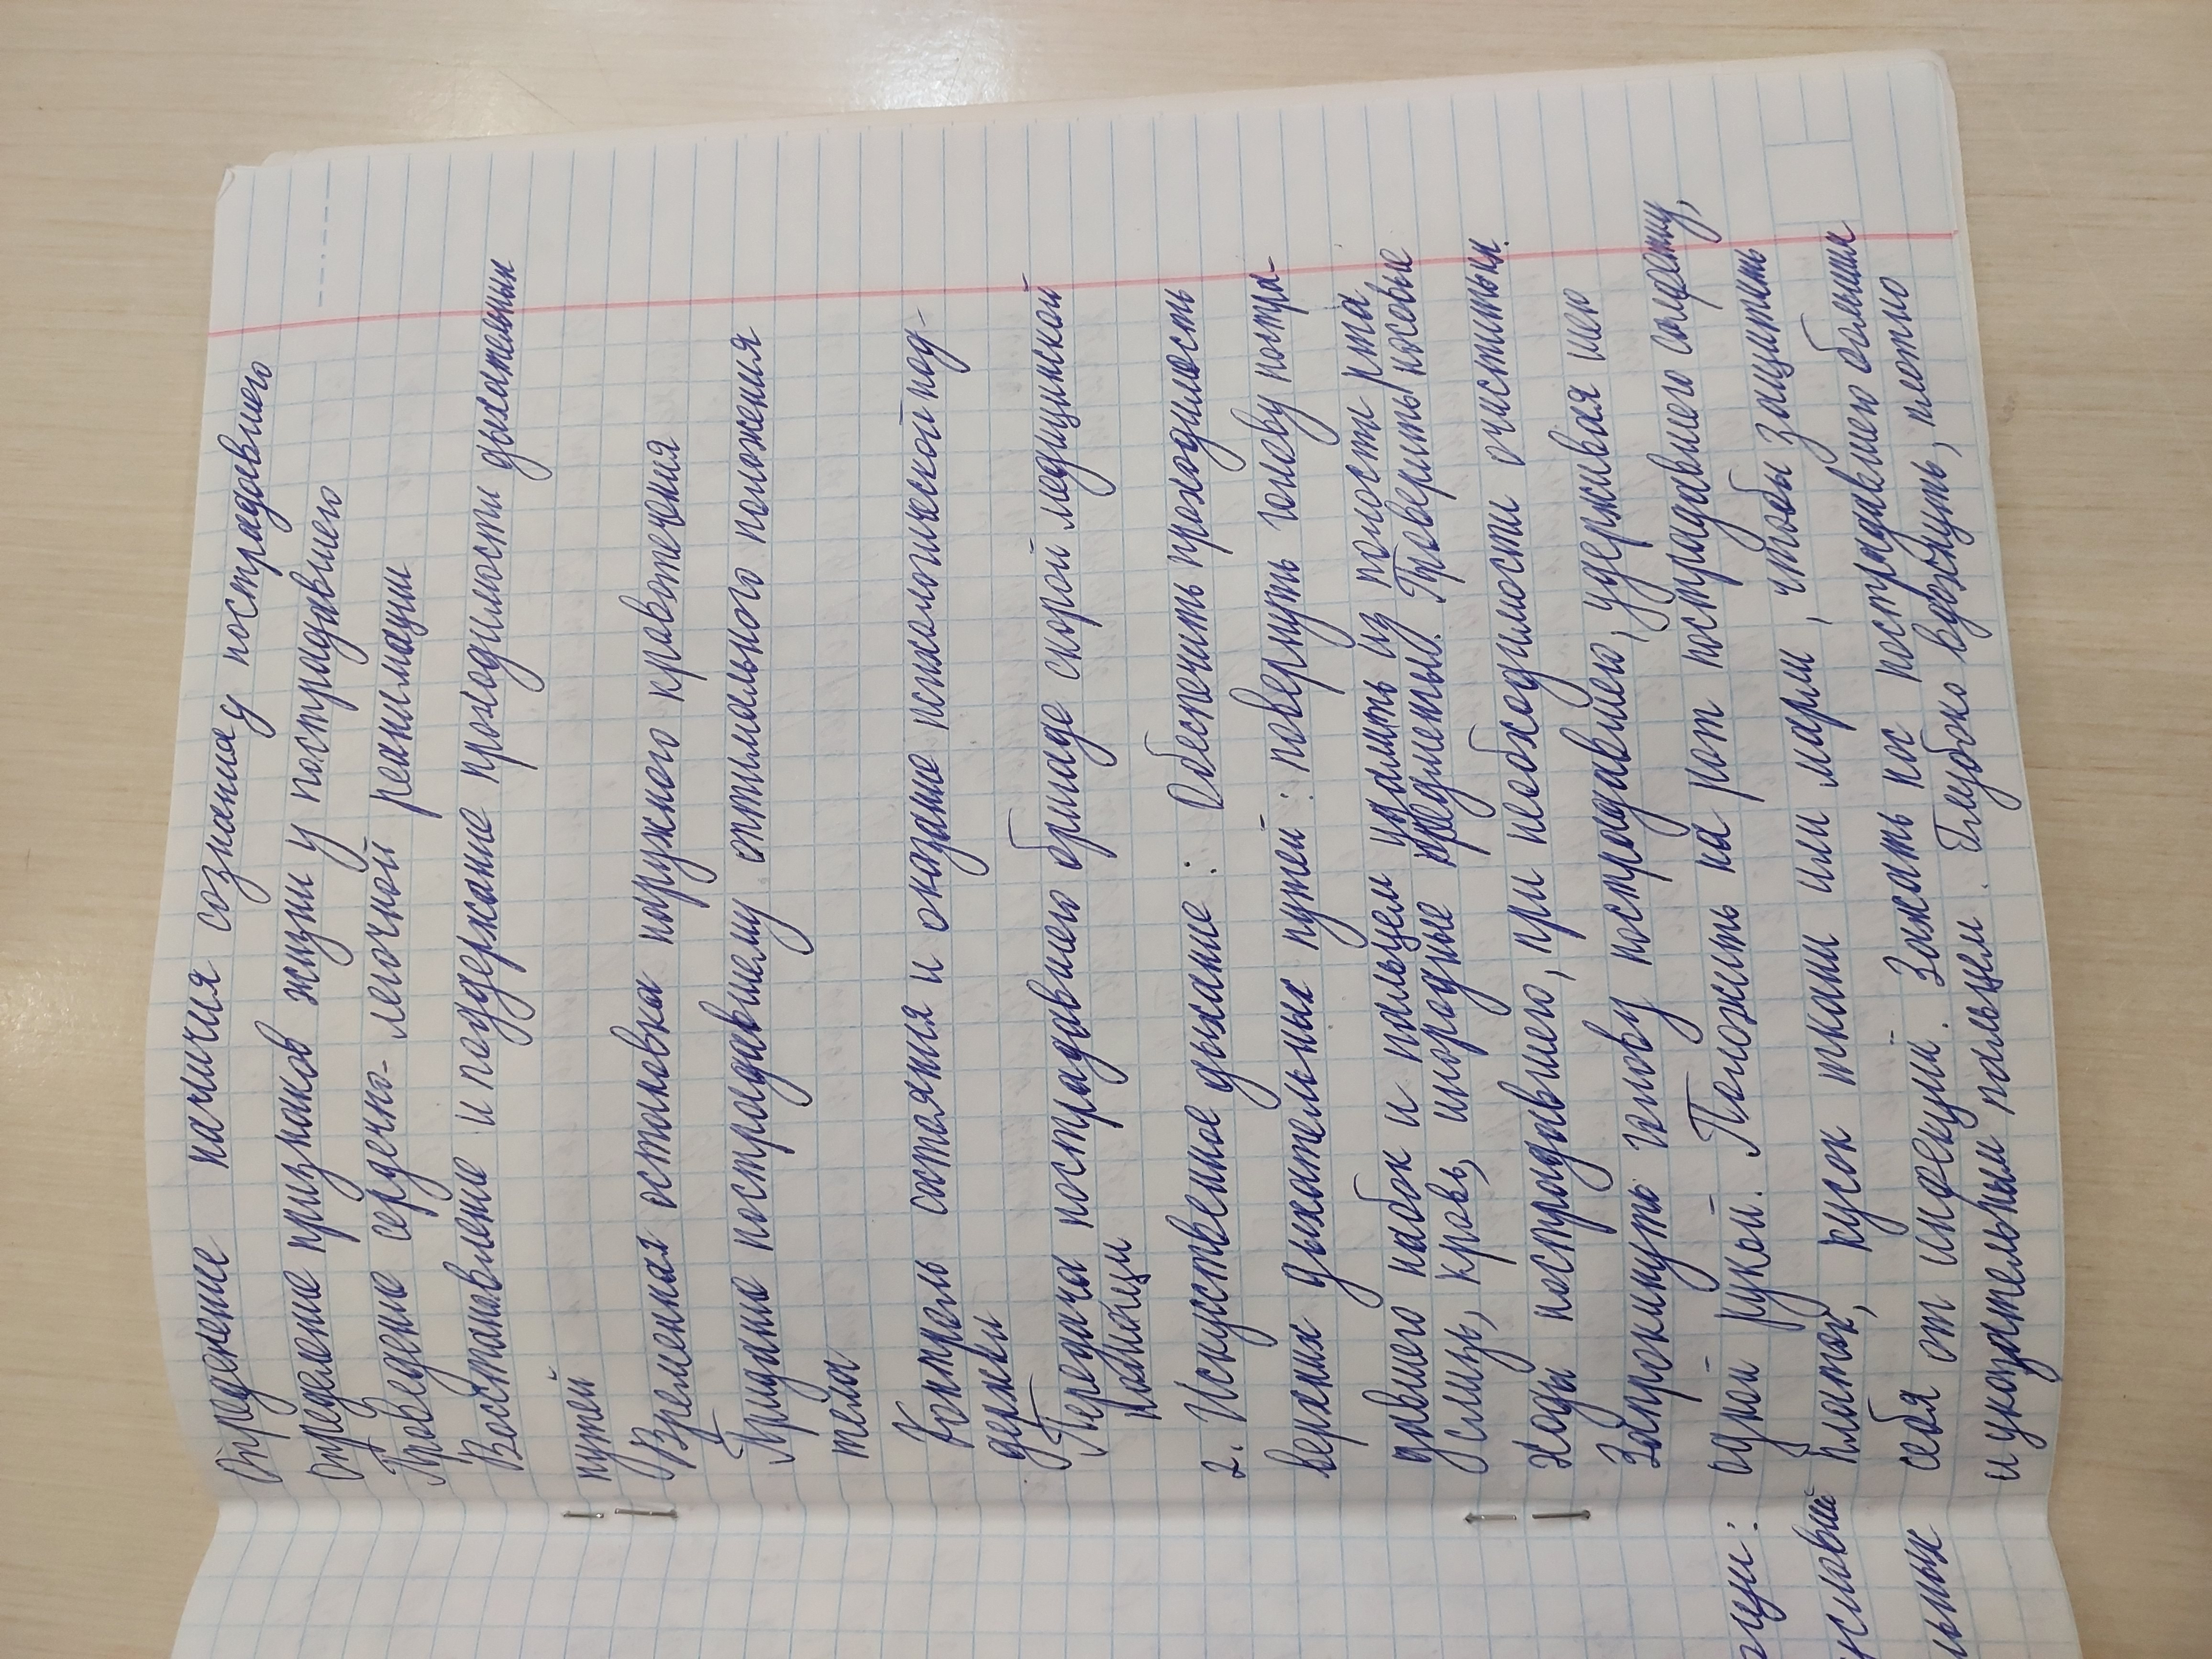 Определение наличия сознания у пострадавшего
Определение признаков жизни у пострадавшего
Проведение сердечно-легочной реанимации
Восстановление и поддержание проходимости дыхательных
путей
Временная остановка наружного кровотечения
Придание пострадавшему оптимального положения
тела
Контроль состояния и оказание психологической под-
держки
Передача пострадавшего бригаде скорой медицинской
помощи
2. Искусственное дыхание: Обеспечить проходимость
верхних дыхательных путей: повернуть голову постра-
давшего набок и пальцем удалить из полости рта
слизь, кровь, инородные предметы. Проверить носовые
ходы пострадавшего, при необходимости очистить их.
Запрокинуть голову пострадавшего, удерживая шею
одной рукой. Положить на рот пострадавшего салфетку,
платок, кусок ткани или марли, чтобы защитить
себя от инфекций. Зажать нос пострадавшего большим
и указательным пальцем. Глубоко вдохнуть, плотно
ции:
условий
льных